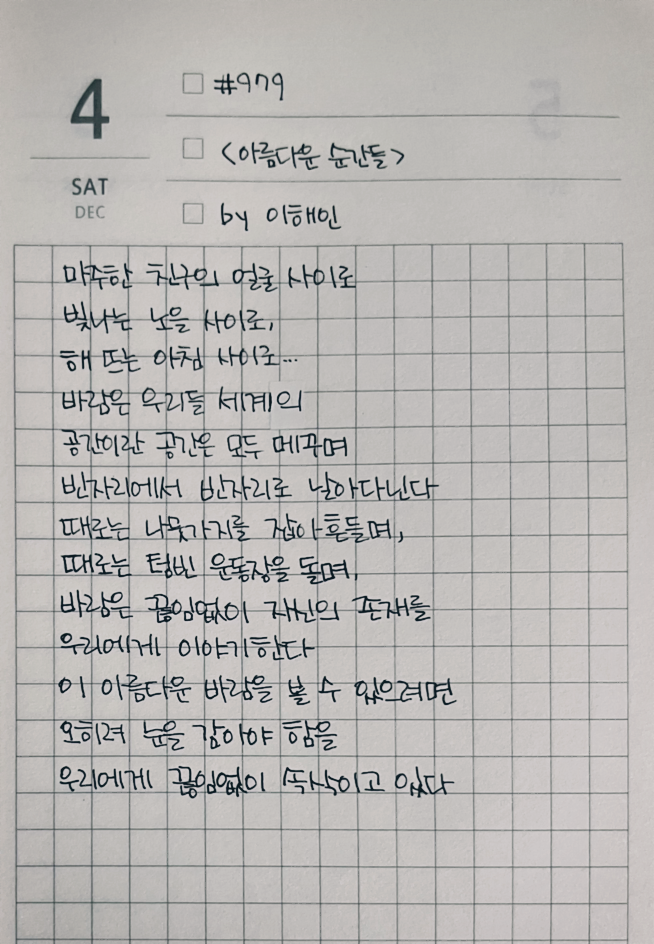 4
SAT
DEC
#979
<아름다운 순간들>
by 이해인
마주한 친구의 얼굴 사이로
빛나는 노을 사이로,
해 뜨는 아침 사이로...
바람은 우리들 세계의
공간이란 공간은 모두 메꾸며
빈자리에서 빈자리로 날아다닌다
때로는 나뭇가지를 잡아흔들며,
때로는 텅빈 운동장을 돌며,
바람은 끊임없이 자신의 존재를
우리에게 이야기한다
이 아름다운 바람을 볼 수 있으려면
오히려 눈을 감아야 함을
우리에게 끊임없이 속삭이고 있다